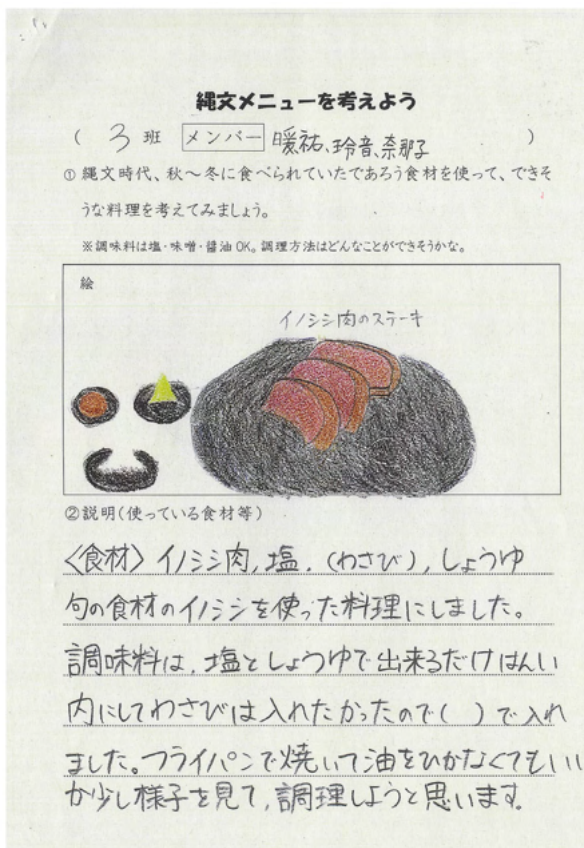 縄文メニューを考えよう
( 3 班 メンバー 暖祐、玲音、奈那子 )
① 縄文時代、秋～冬に食べられていたであろう食材を使って、できそ
うな料理を考えてみましょう。
※調味料は塩・味噌・醤油 OK。調理方法はどんなことができそうかな。
絵
イノシシ肉のステーキ
②説明(使っている食材等)
〈食材〉イノシシ肉,塩,(わさび),しょうゆ
旬の食材のイノシシを使った料理にしました。
調味料は,塩としょうゆで出来るだけはんい
内にしてわさびは入れたかったので( )で入れ
ました。フライパンで焼いて油をひかなくてもいい
か少し様子を見て,調理しようと思います。